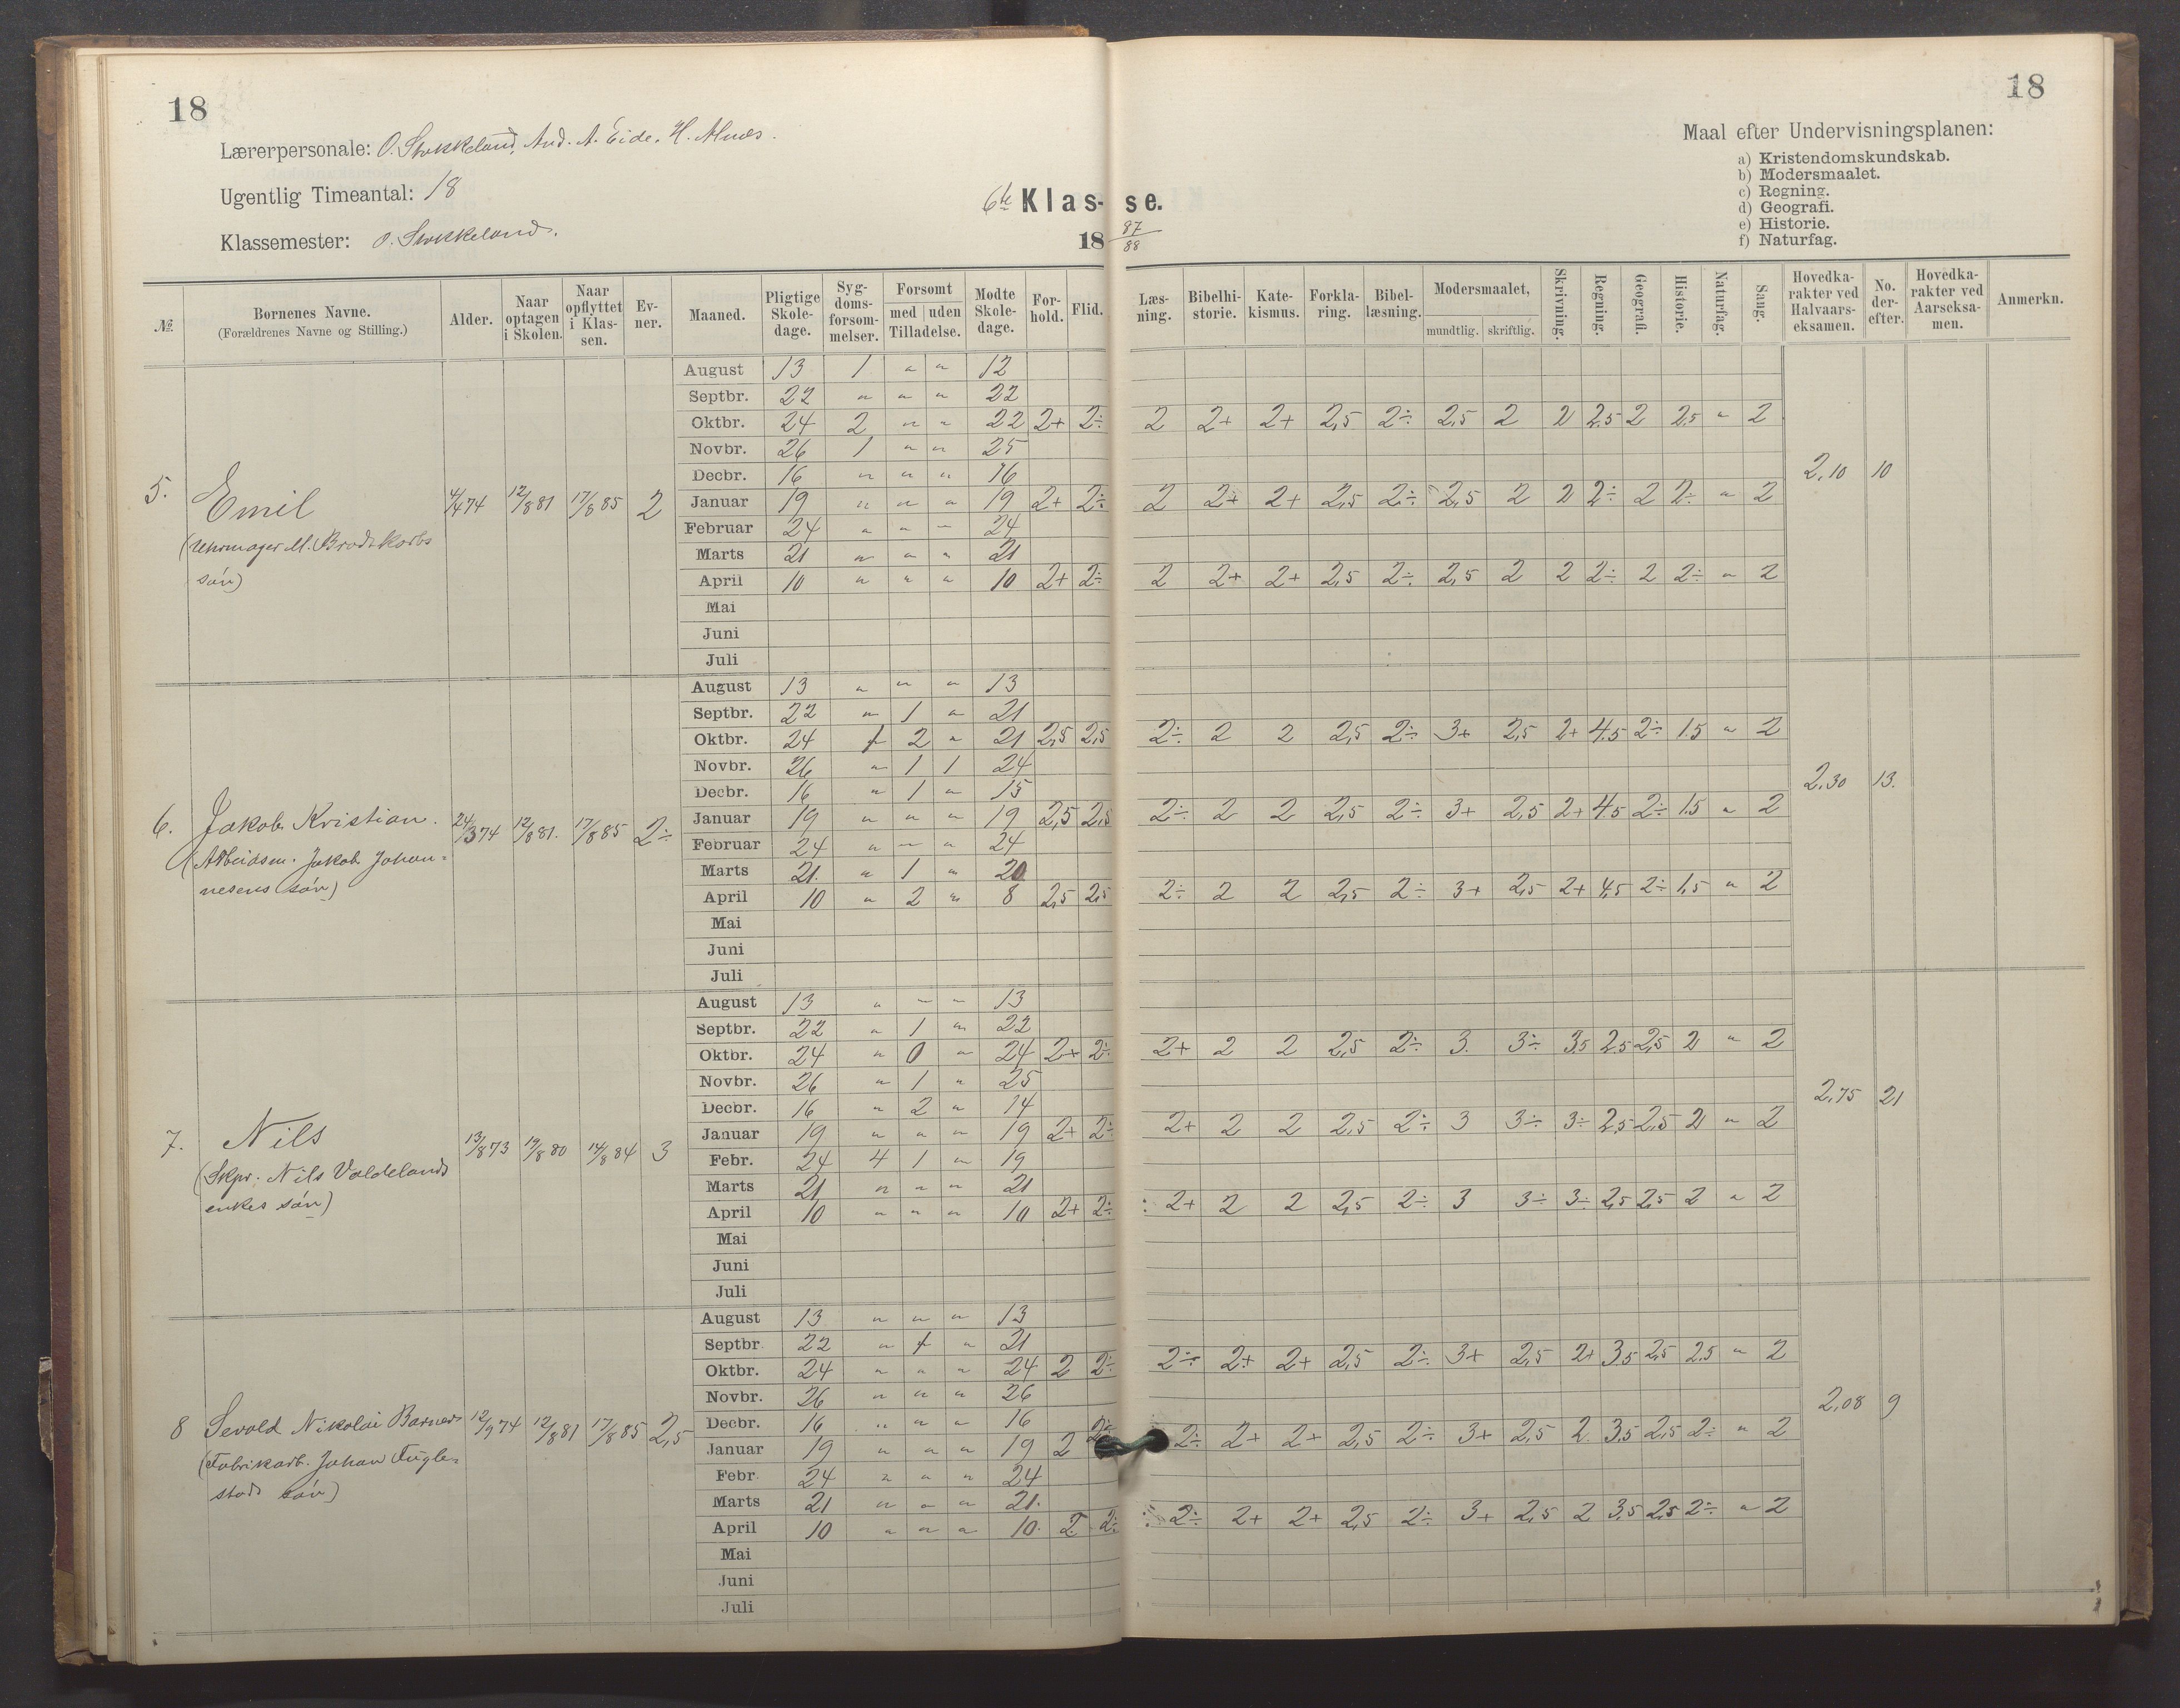 18
18
Lærerpersonale: O. Stokkeland, And. A. Eide. H. Alnæs.
Ugentlig Timeantal: 18
Klassemester: O. Stokkeland.
6te Klasse.
18 87/88
Maal efter Undervisningsplanen:
a) Kristendomskundskab.
b) Modersmaalet.
c) Regning.
d) Geografi.
e) Historie.
f) Naturfag.
№ Børnenes Navne. (Forældrenes Navne og Stilling.) Alder. Naar optagen i Skolen. Naar opflyttet i Klassen. Evner. Maaned. Pligtige Skoledage. Sygdomsforsømmelser. Forsømt med uden Tilladelse. Mødte Skoledage. Forhold. Flid. Læsning. Bibelhistorie. Katekismus. Forklaring. Bibellæsning. Modersmaalet, mundtlig. skriftlig. Skrivning. Regning. Geografi. Historie. Naturfag. Sang. Hovedkarakter ved Halvaarseksamen. No. derefter. Hovedkarakter ved Aarseksamen. Anmerkn.
5. Emil
(Uhrmager M. Brodtkorbs
søn)
4/4 74 12/8 81 17/8 85 2
August 13 1 " " 12
Septbr. 22 " " " 22
Oktbr. 24 2 " " 22 2+ 2÷ 2 2+ 2+ 2,5 2÷ 2,5 2 2 2,5 2 2,5 " 2
Novbr. 26 1 " " 25
Decbr. 16 " " " 16
2,10 10
Januar 19 " " " 19 2+ 2÷ 2 2+ 2+ 2,5 2÷ 2,5 2 2 2÷ 2 2÷ " 2
Februar 24 " " " 24
Marts 21 " " " 21
April 10 " " " 10 2+ 2÷ 2 2+ 2+ 2,5 2÷ 2,5 2 2 2÷ 2 2÷ " 2
Mai
Juni
Juli
6. Jakob Kristian.
(Arbeidsm. Jakob Johan-
nesens søn)
24/3 74 12/8 81. 17/8 85 2÷
August 13 " " " 13
Septbr. 22 " 1 " 21
Oktbr. 24 1 2 " 21 2,5 2,5 2÷ 2 2 2,5 2÷ 3+ 2,5 2+ 4,5 2÷ 1,5 " 2
Novbr. 26 " 1 1 24
Decbr. 16 " 1 " 15
2,30 13.
Januar 19 " " " 19 2,5 2,5 2÷ 2 2 2,5 2÷ 3+ 2,5 2+ 4,5 2÷ 1,5 " 2
Februar 24 " " " 24
Marts 21. " 1 " 20
April 10 " 2 " 8 2,5 2,5 2÷ 2 2 2,5 2÷ 3+ 2,5 2+ 4,5 2÷ 1,5 " 2
Mai
Juni
Juli
7. Nils
(Skpr. Nils Valdelands
enkes søn)
13/8 73 19/8 80 14/8 84 3
August 13 " " " 13
Septbr. 22 " 1 " 22
Oktbr. 24 " 0 " 24 2+ 2÷ 2+ 2 2 2,5 2÷ 3. 3÷ 3,5 2,5 2,5 2 " 2
Novbr. 26 " 1 " 25
Decbr. 16 " 2 " 14
2,75 21
Januar 19 " " " 19 2+ 2÷ 2+ 2 2 2,5 2÷ 3 3÷ 3÷ 2,5 2,5 2 " 2
Febr. 24 4 1 " 19
Marts 21 " " " 21
April 10 " " " 10 2+ 2÷ 2+ 2 2 2,5 2÷ 3 3÷ 3÷ 2,5 2,5 2 " 2
Mai
Juni
Juli
8 Sevald Nikolai Barners
(Fabrikarb. Johan Fugle-
stads søn)
12/9 74 12/8 81 17/8 85 2,5
August 13 " " " 13
Septbr 22 " 1 " 21
Oktbr. 24 " " " 24 2 2÷ 2÷ 2+ 2+ 2,5 2÷ 3+ 2,5 2+ 3,5 2,5 2,5 " 2
Novbr. 26 " " " 26
Decbr. 16 " " " 16
2,08 9
Januar 19 " " " 19 2 2÷ 2÷ 2+ 2+ 2,5 2÷ 3+ 2,5 2. 3,5 2,5 2÷ " 2
Febr 24 " " " 24
Marts 21 " " " 21.
April 10 " " " 10. 2 2÷ 2÷ 2+ 2+ 2,5 2÷ 3+ 2,5 2 3,5 2,5 2÷ " 2
Mai
Juni
Juli